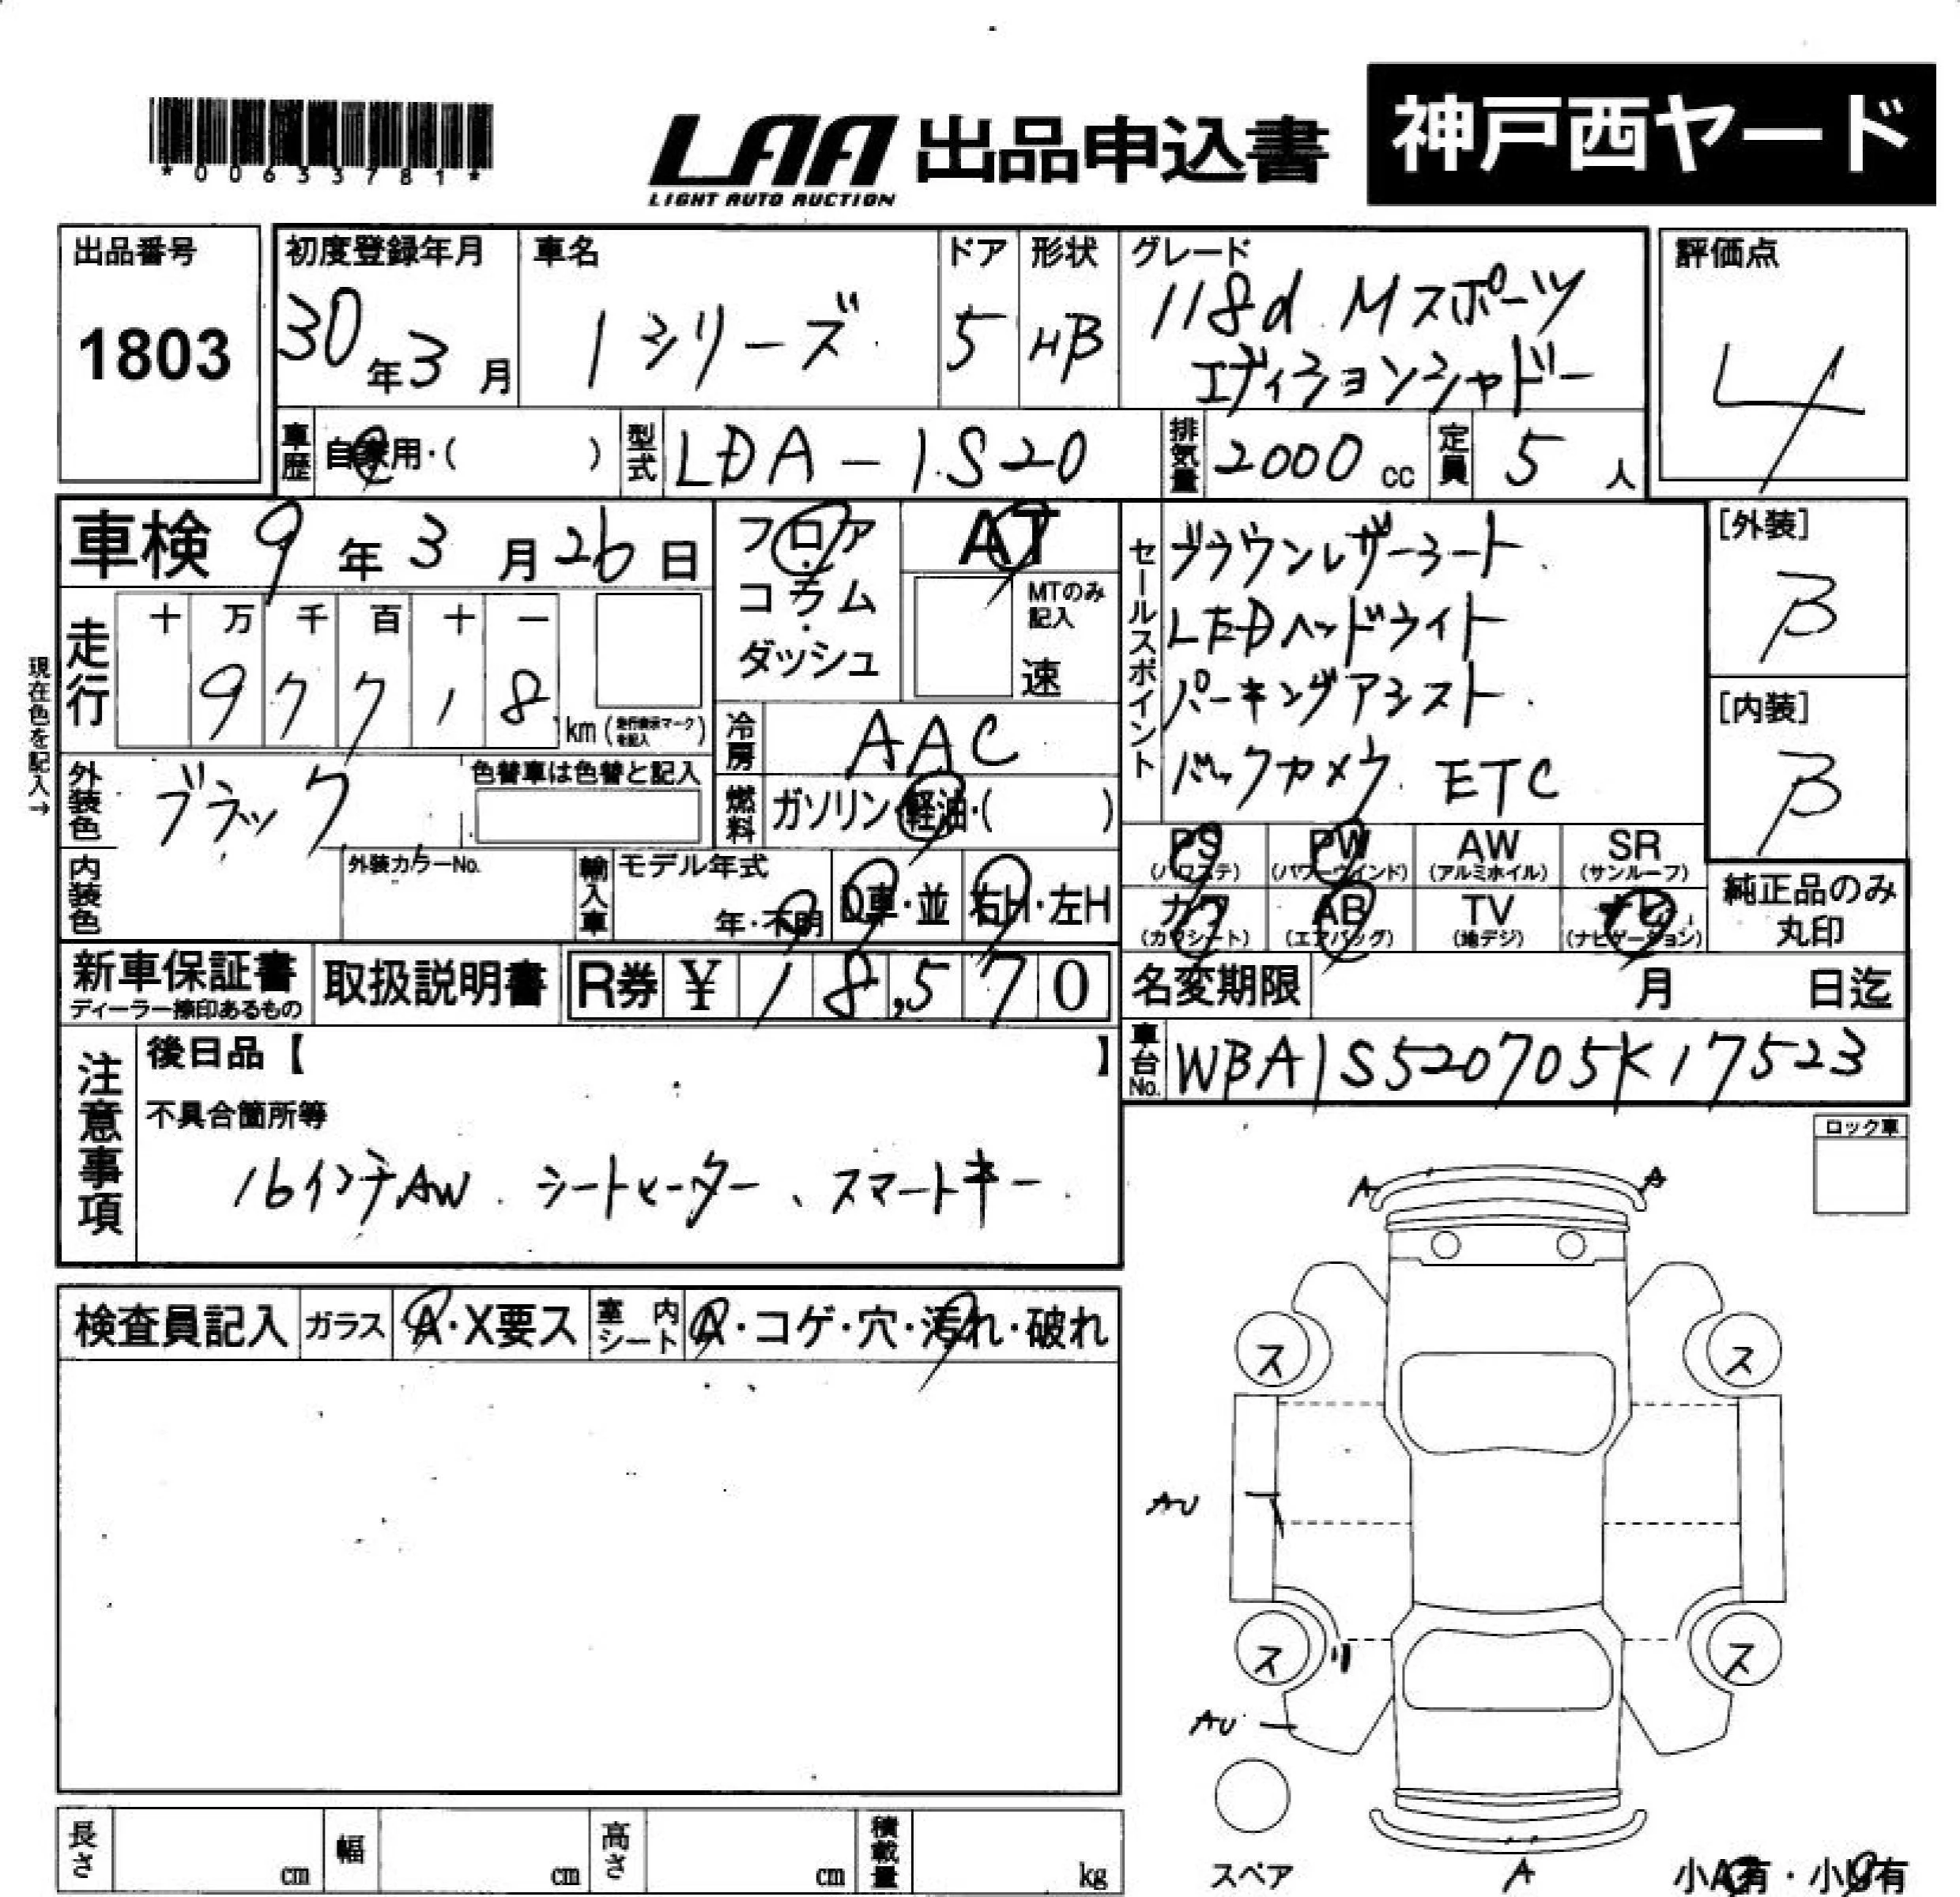 *00633781*
LAA 出品申込書
LIGHT AUTO AUCTION
神戸西ヤード
出品番号
1803
初度登録年月
30年3月
車名
1シリーズ
ドア
5
形状
HB
グレード
118d Mスポーツ
エディションシャドー
評価点
4
車歴
自家用・( )
型式
LDA-1S20
排気量
2000 cc
定員
5 人
車検 9年3月26日
フロア・コラム・ダッシュ
AT
MTのみ記入
速
セールスポイント
ブラウンレザーシート
LEDヘッドライト
パーキングアシスト
バックカメラ ETC
[外装]
B
[内装]
B
現在色を記入→
走行
十 万 千 百 十 一
97718 km (走行表示マークを記入)
冷房
AAC
外装色
ブラック
色替車は色替と記入
燃料
ガソリン・軽油・( )
内装色
外装カラーNo.
輸入車
モデル年式
年・不明
D車・並
右H・左H
PS
(パワステ)
PW
(パワーウインド)
AW
(アルミホイル)
SR
(サンルーフ)
カワ
(カワシート)
AB
(エアバッグ)
TV
(地デジ)
ナビ
(ナビゲーション)
純正品のみ
丸印
新車保証書
ディーラー捺印あるもの
取扱説明書
R券 ¥ 18,570
名変期限 月 日迄
車台No.
WBA1S520705K17523
注意事項
後日品【 】
不具合箇所等
16インチAW . シートヒーター、スマートキー
ロック車
検査員記入
ガラス
A・X要ス
室内シート
A・コゲ・穴・汚れ・破れ
A
A
ス
ス
AU
ス
ス
AU
スペア
A
小A有・小U有
長さ cm
幅 cm
高さ cm
積載量 kg